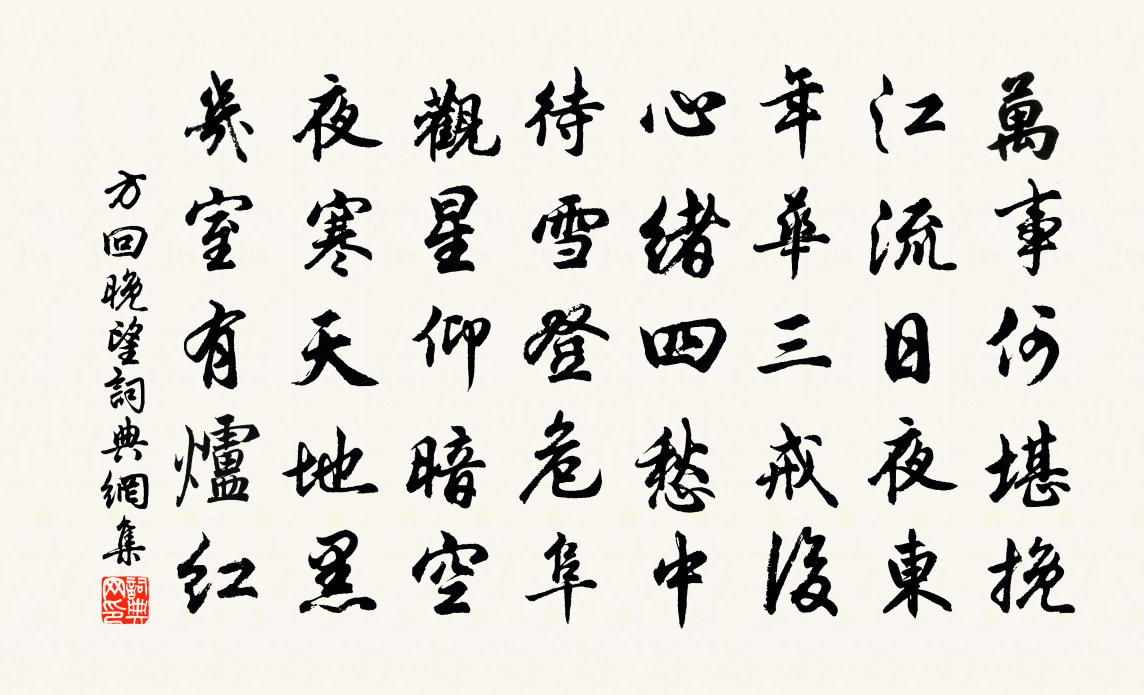 萬事何堪挽
江流日夜東
年華三戒後
心緒四愁中
待雪登危阜
觀星仰暗空
夜寒天地黑
幾室有爐紅
方回晚望詞典網集
詞典網印